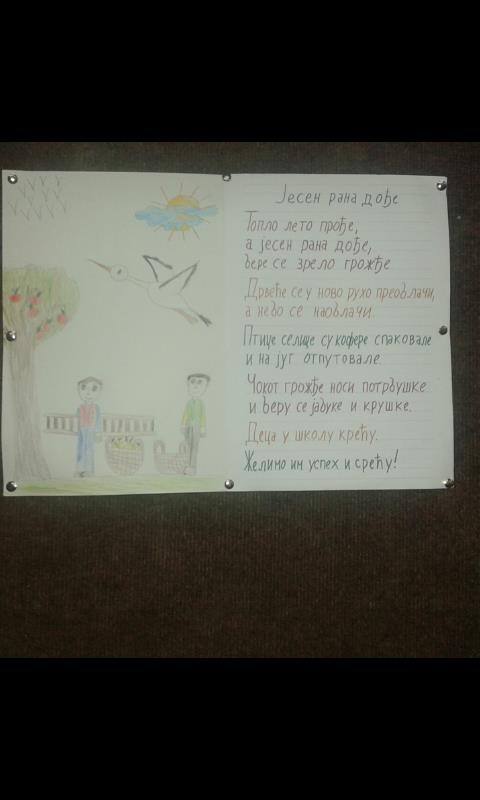 Јесен рана дође
Топло лето прође,
а јесен рана дође,
бере се зрело грожђе
Дрвеће се у ново рухо преоблачи,
а небо се наоблачи.
Птице селице су кофере спаковале
и на југ отпутовале.
Чокот грожђе носи потрбушке
и беру се јабуке и крушке.
Деца у школу крећу.
Желимо им успех и срећу!